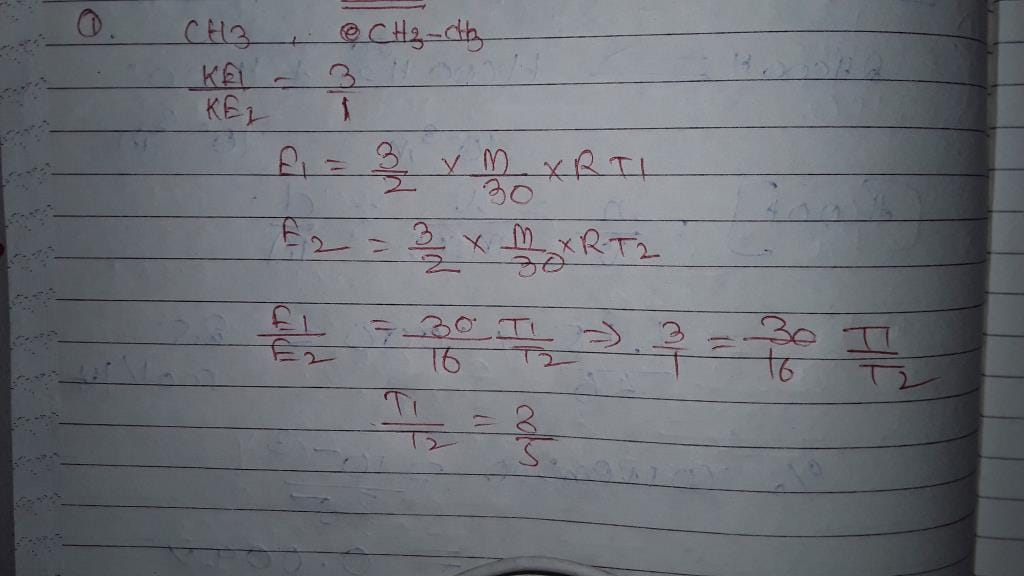 ①. CH3 , CH3-CH3
KE1/KE2 = 3/1
E1 = 3/2 × m/30 × RT1
E2 = 3/2 × m/30 × RT2
E1/E2 = 30/16 T1/T2 ⇒ 3/1 = 30/16 T1/T2
T1/T2 = 8/5